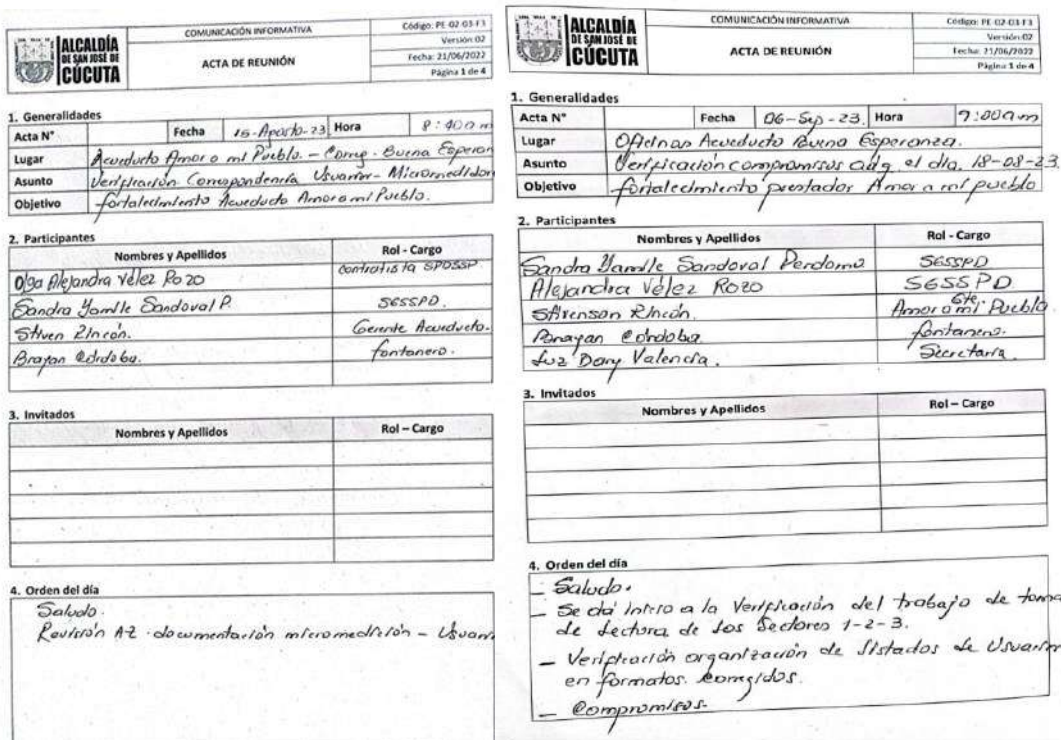 ALCALDÍA
DE SAN JOSÉ DE
CÚCUTA
COMUNICACIÓN INFORMATIVA
ACTA DE REUNIÓN
Código: PE-02-03-F3
Versión:02
Fecha: 21/06/2022
Página 1 de 4
1. Generalidades
Acta N° Fecha 15-Agosto-23 Hora 8:400am
Lugar Acueducto Amor a mi Pueblo. - Correg. Buena Esperan
Asunto Verificación Correspondencia Usuarios - Micromedidor
Objetivo fortalecimiento Acueducto Amor a mi Pueblo.
2. Participantes
Nombres y Apellidos Rol - Cargo
Olga Alejandra Vélez Rozo contratista SPDSSP
Sandra Yamile Sandoval P. SGSSPD.
Stiven Rincón. Gerente Acueducto.
Brayan Córdoba. fontanero.
3. Invitados
Nombres y Apellidos Rol – Cargo
4. Orden del día
Saludo.
Revisión AZ documentación micromedición - Usuari
ALCALDÍA
DE SAN JOSÉ DE
CÚCUTA
COMUNICACIÓN INFORMATIVA
ACTA DE REUNIÓN
Código: PE-02-03-F3
Versión:02
Fecha: 21/06/2022
Página 1 de 4
1. Generalidades
Acta N° Fecha 06-Sep-23. Hora 9:00am
Lugar Oficinas Acueducto Buena Esperanza.
Asunto Verificación compromisos adq. el día. 18-08-23.
Objetivo fortalecimiento prestador Amor a mi pueblo
2. Participantes
Nombres y Apellidos Rol - Cargo
Sandra Yamile Sandoval Perdomo SGSSPD
Alejandra Vélez Rozo SGSSPD.
Stivenson Rincón. Gte. Amor a mi Pueblo
Córdoba fontanero.
Luz Dary Valencia. Secretaria.
3. Invitados
Nombres y Apellidos Rol – Cargo
4. Orden del día
- Saludo.
- Se dá inicio a la Verificación del trabajo de toma
de Lectura de los Sectores 1-2-3.
- Verificación organización de listados de Usuarios
en formatos. Corregidos.
- Compromisos.